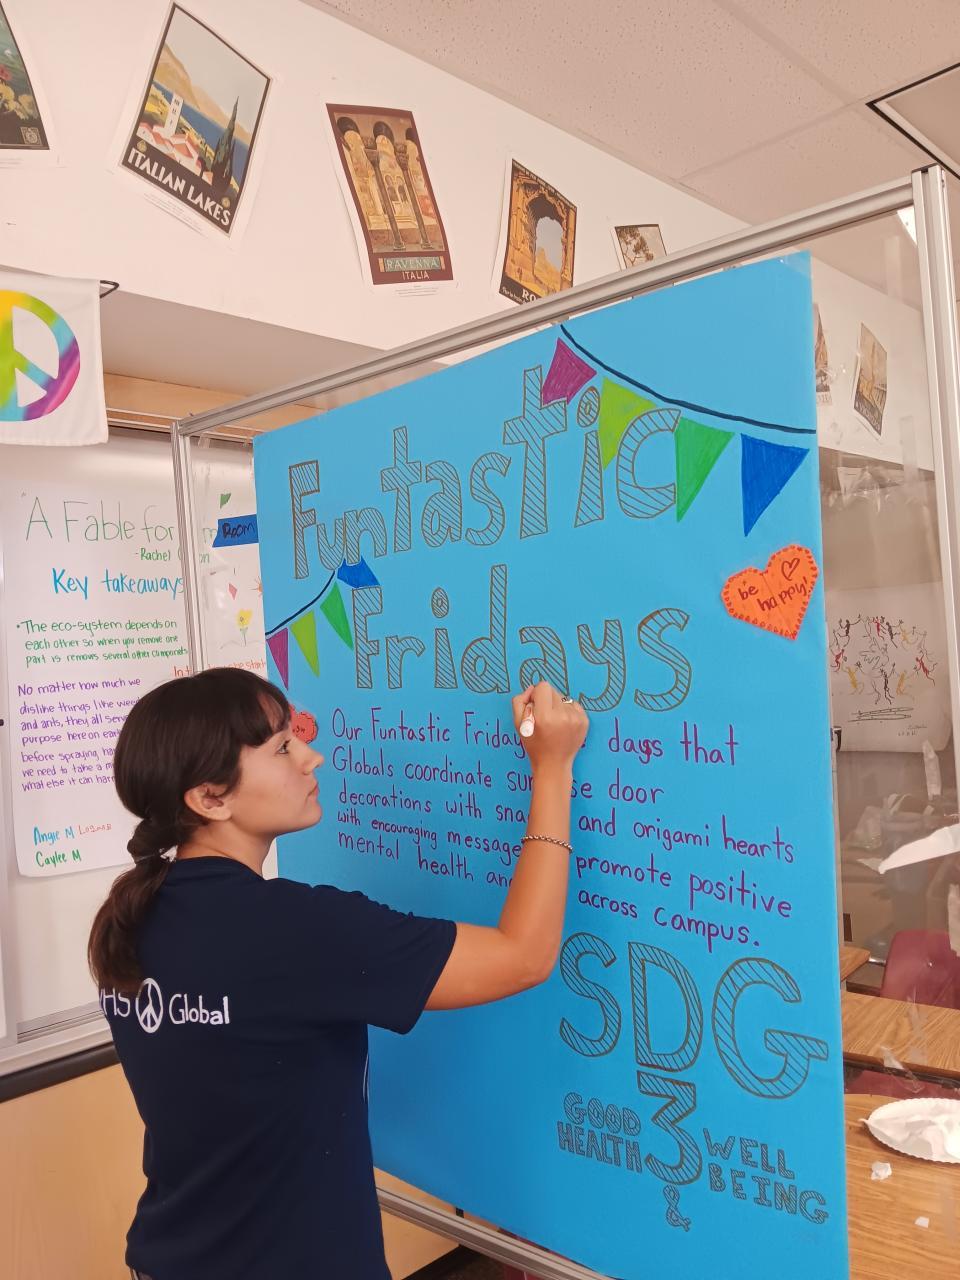 ITALIAN LAKES
RAVENNA
ITALIA
"A Fable for
- Rachel
Key takeaways
• The eco-system depends on
each other so when you remove one
part is removes several other components
No matter how much we
dislike things like
and ants, they all
purpose here on
before spraying
we need to take a
what else it can
Angie M
Caylee M
Funtastic
Fridays
be
happy!
Our Funtastic days that
Globals coordinate door
decorations with and origami hearts
with encouraging promote positive
mental health across campus.
SDG
3
GOOD
HEALTH
&
WELL
BEING
Global